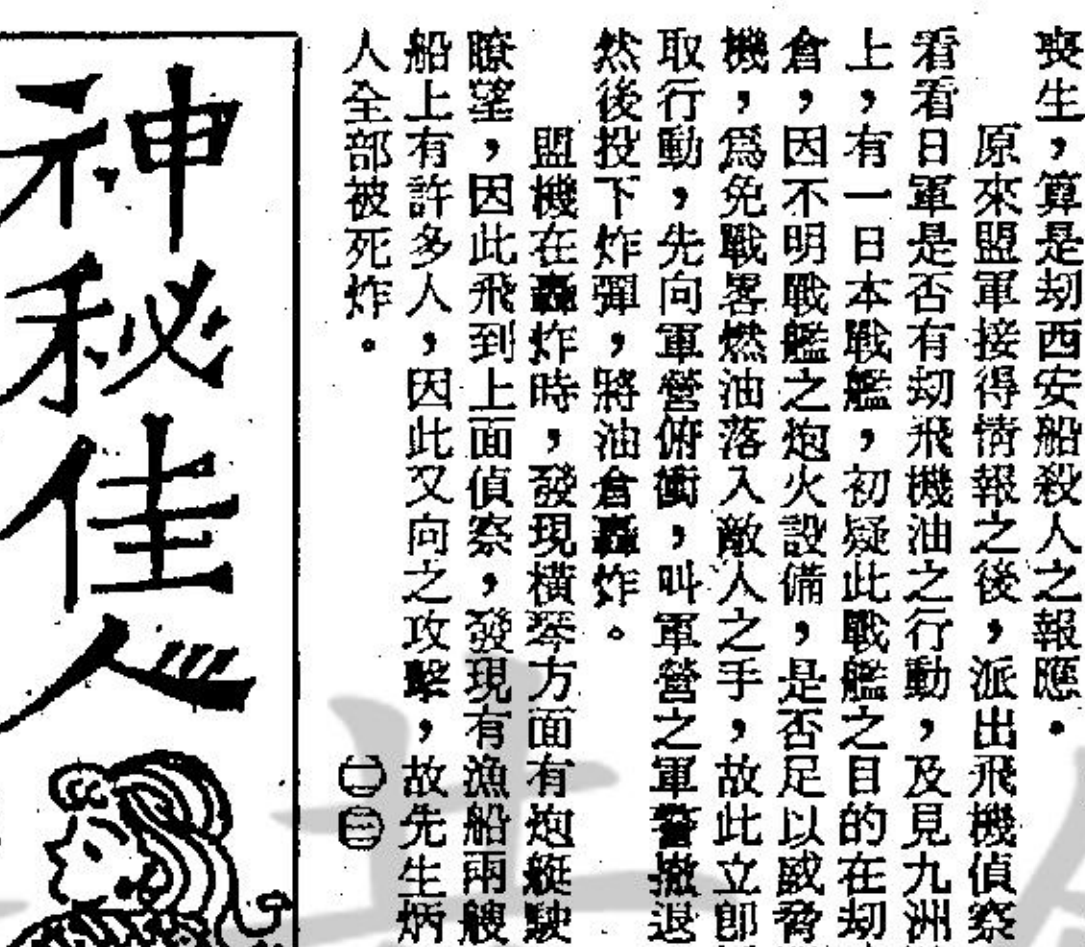 喪生，算是刼西安船殺人之報應。
原來盟軍接得情報之後，派出飛機偵察
看看日軍是否有刼飛機油之行動，及見九洲
上，有一日本戰艦，初疑此戰艦之目的在刼
倉，因不明戰艦之炮火設備，是否足以威脅
機，爲免戰畧燃油落入敵人之手，故此立卽
取行動，先向軍營俯衝，叫軍營之軍警撤退
然後投下炸彈，將油倉轟炸。
盟機在轟炸時，發現橫琴方面有炮艇駛
瞭望，因此飛到上面偵察，發現有漁船兩艘
船上有許多人，因此又向之攻擊，故先生炳
人全部被死炸。
㊀㊂
神秘佳人